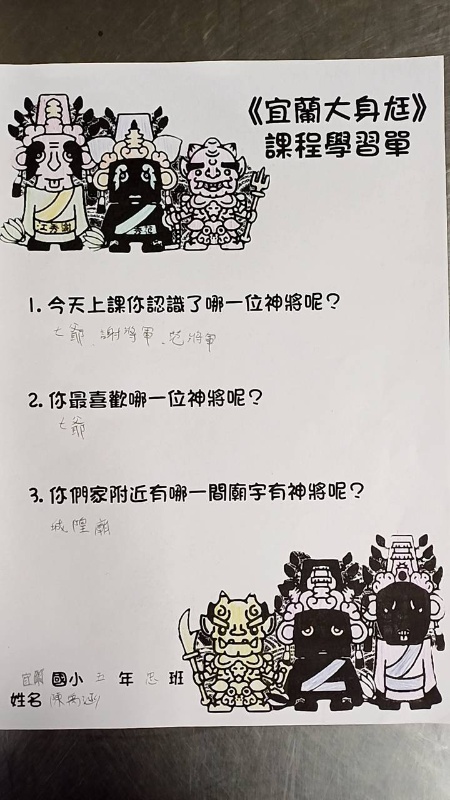 《宜蘭大身尪》
課程學習單
1. 今天上課你認識了哪一位神將呢？
七爺、謝將軍、范將軍
2. 你最喜歡哪一位神將呢？
七爺
3. 你們家附近有哪一間廟宇有神將呢？
城隍廟
宜蘭 國小 五 年 忠 班
姓名 陳